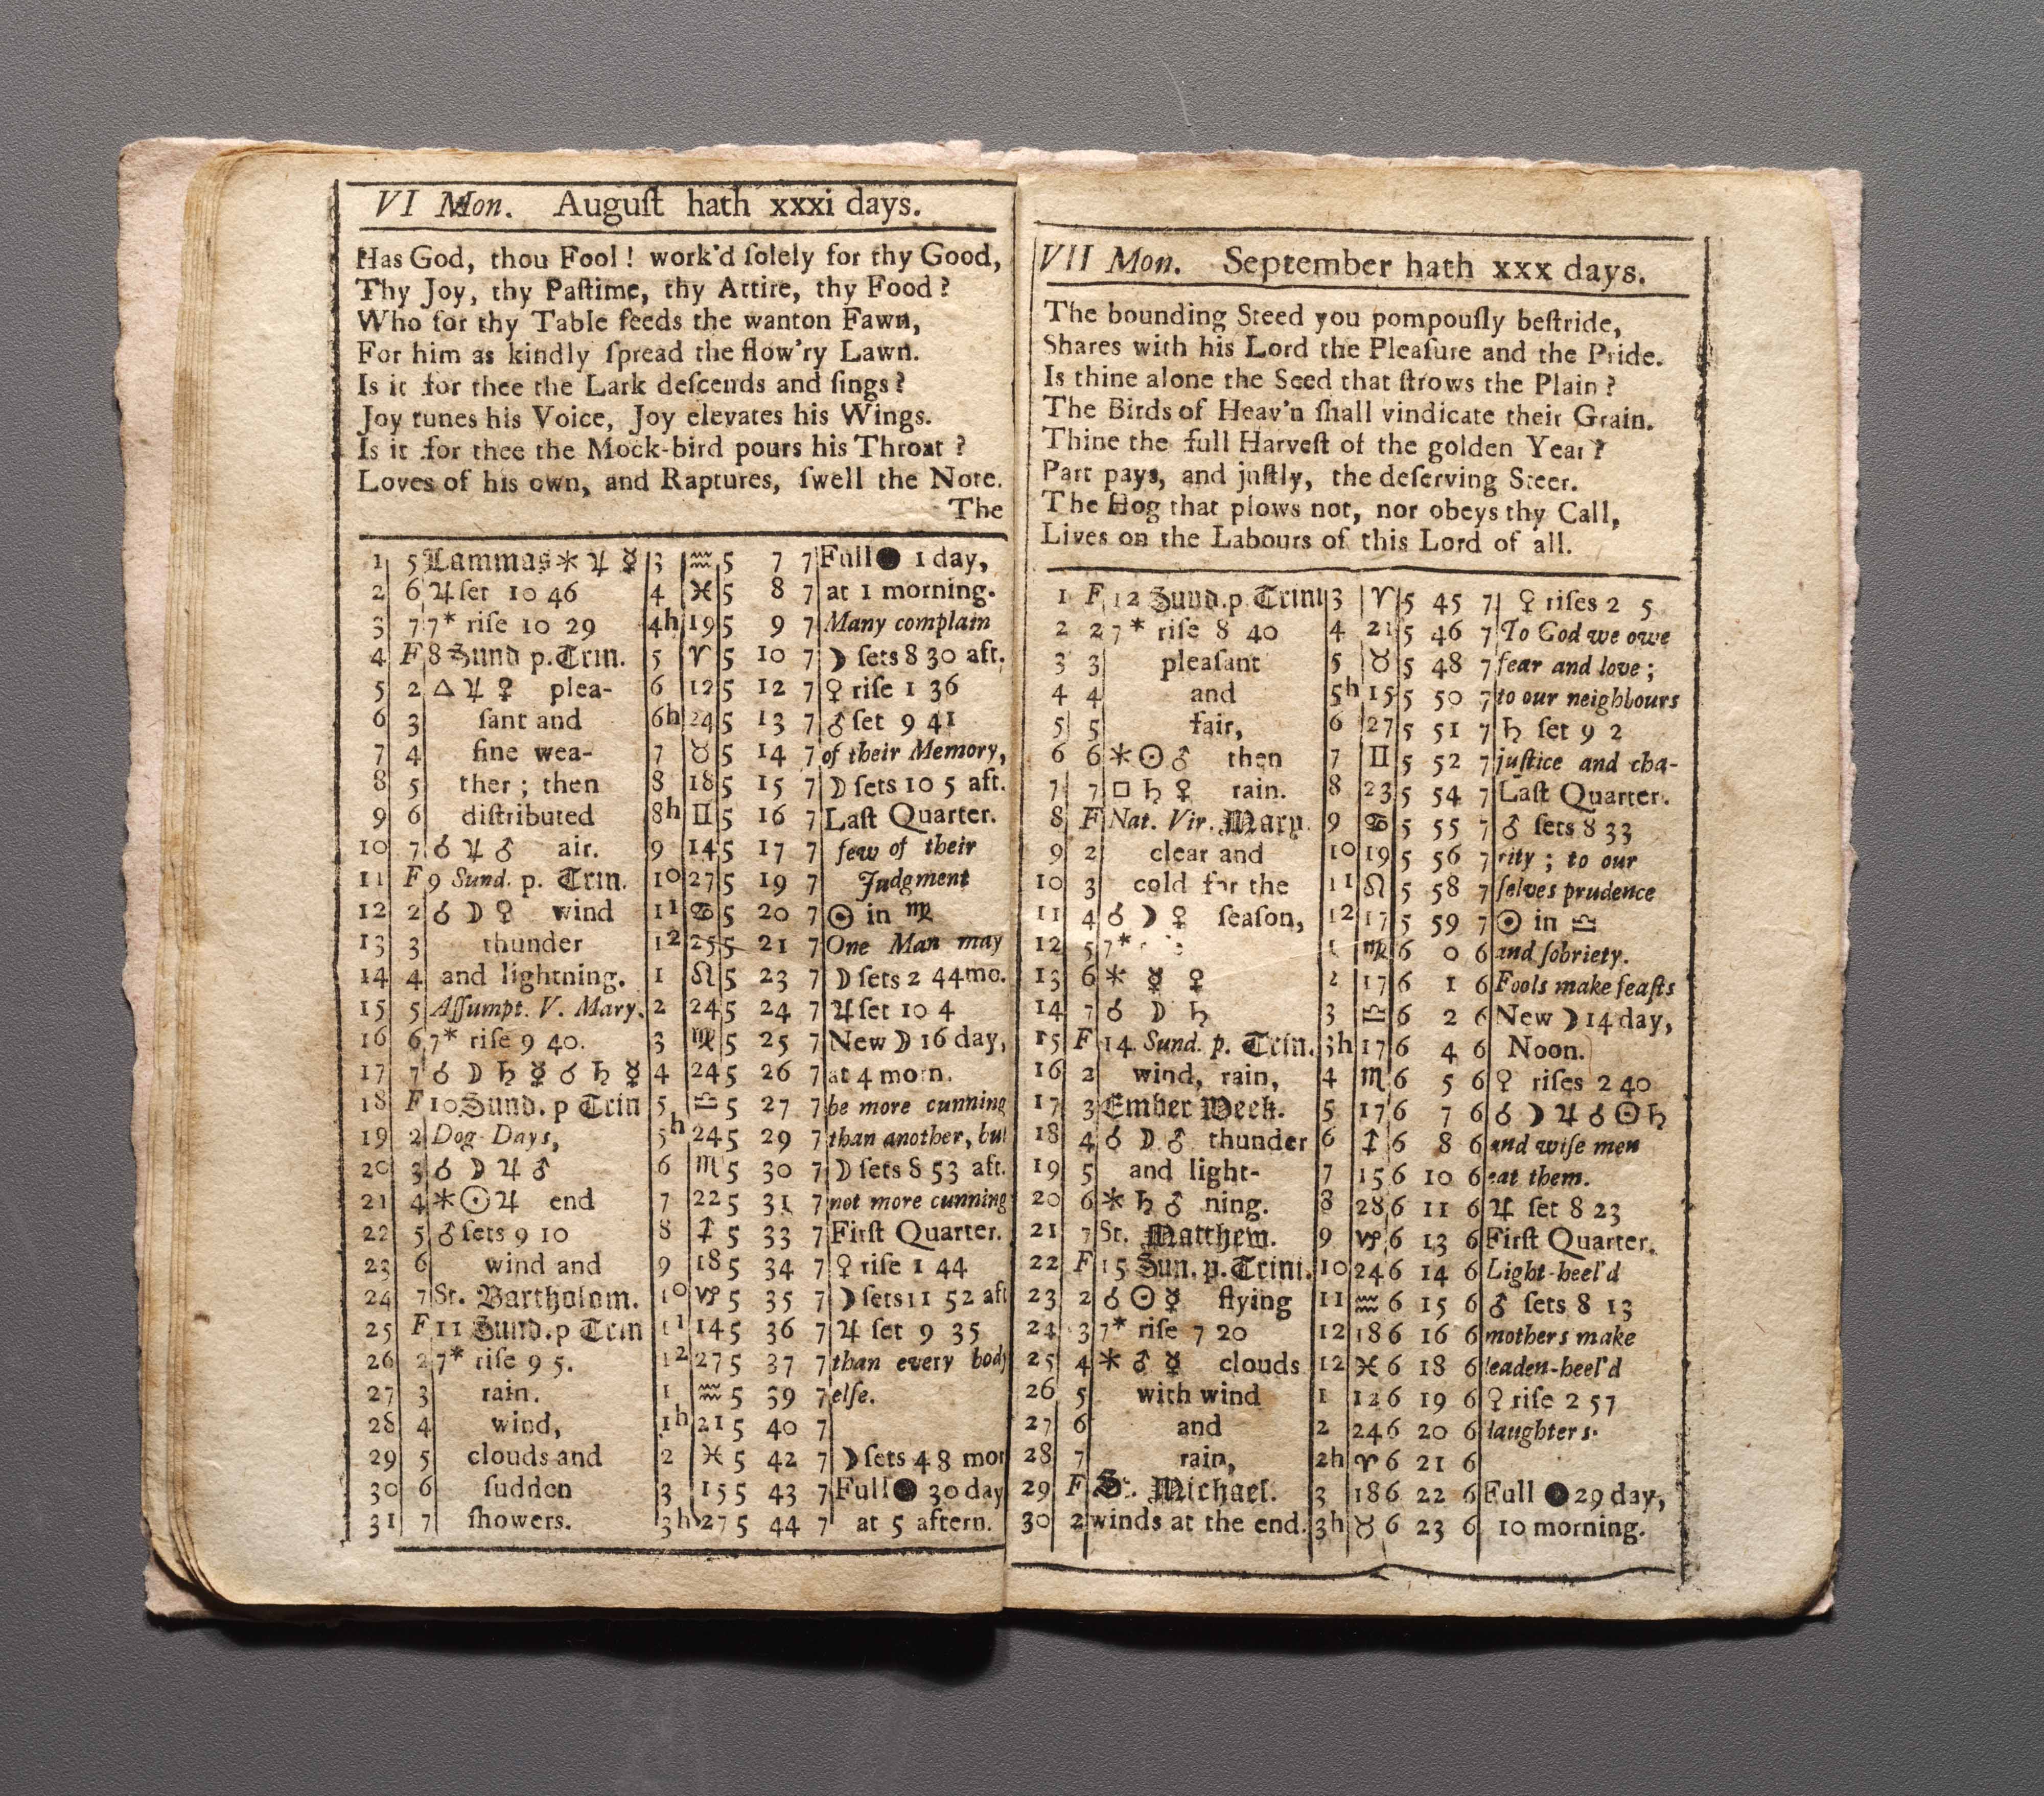 VI Mon. Auguſt hath xxxi days.
Has God, thou Fool! work'd ſolely for thy Good,
Thy Joy, thy Paſtime, thy Attire, thy Food?
Who for thy Table feeds the wanton Fawn,
For him as kindly ſpread the flow'ry Lawn.
Is it for thee the Lark deſcends and ſings?
Joy tunes his Voice, Joy elevates his Wings.
Is it for thee the Mock-bird pours his Throat?
Loves of his own, and Raptures, ſwell the Note.
The
1 5 Lammas ⚹ ♃ ☿ 3 ♒ 5 7 7 Full ● 1 day,
2 6 ♃ ſet 10 46 4 ♓ 5 8 7 at 1 morning.
3 7 7* riſe 10 29 4h 19 5 9 7 Many complain
4 F 8 Sund p. Trin. 5 ♈ 5 10 7 ☽ ſets 8 30 aft.
5 2 △ ♃ ♀ plea- 6 12 5 12 7 ♀ riſe 1 36
6 3 ſant and 6h 24 5 13 7 ♂ ſet 9 41
7 4 fine wea- 7 ♉ 5 14 7 of their Memory,
8 5 ther; then 8 18 5 15 7 ☽ ſets 10 5 aft.
9 6 diſtributed 8h ♊ 5 16 7 Laſt Quarter.
10 7 ☌ ♃ ♂ air. 9 14 5 17 7 few of their
11 F 9 Sund. p. Trin. 10 27 5 19 7 Judgment
12 2 ☌ ☽ ♀ wind 11 ♋ 5 20 7 ☉ in ♍
13 3 thunder 12 25 5 21 7 One Man may
14 4 and lightning. 1 ♌ 5 23 7 ☽ ſets 2 44 mo.
15 5 Aſſumpt. V. Mary. 2 24 5 24 7 ♃ ſet 10 4
16 6 7* riſe 9 40. 3 ♍ 5 25 7 New ☽ 16 day,
17 7 ☌ ☽ ♄ ☿ ☌ ♄ ☿ 4 24 5 26 7 at 4 morn.
18 F 10 Sund. p Trin 5 ♎ 5 27 7 be more cunning
19 2 Dog-Days, 5h 24 5 29 7 than another, but
20 3 ☌ ☽ ♃ ♂ 6 ♏ 5 30 7 ☽ ſets 8 53 aft.
21 4 ⚹ ☉ ♃ end 7 22 5 31 7 not more cunning
22 5 ♂ ſets 9 10 8 ♐ 5 33 7 Firſt Quarter.
23 6 wind and 9 18 5 34 7 ♀ riſe 1 44
24 7 St. Bartholom. 10 ♑ 5 35 7 ☽ ſets 11 52 aft
25 F 11 Sund. p Trin 11 14 5 36 7 ♃ ſet 9 35
26 2 7* riſe 9 5. 12 27 5 37 7 than every body
27 3 rain. 1 ♒ 5 39 7 elſe.
28 4 wind, 1h 21 5 40 7
29 5 clouds and 2 ♓ 5 42 7 ☽ ſets 4 8 mor
30 6 ſudden 3 15 5 43 7 Full ● 30 day
31 7 ſhowers. 3h 27 5 44 7 at 5 aftern.
VII Mon. September hath xxx days.
The bounding Steed you pompouſly beſtride,
Shares with his Lord the Pleaſure and the Pride.
Is thine alone the Seed that ſtrows the Plain?
The Birds of Heav'n ſhall vindicate their Grain.
Thine the full Harveſt of the golden Year?
Part pays, and juſtly, the deſerving Steer.
The Hog that plows not, nor obeys thy Call,
Lives on the Labours of this Lord of all.
1 F 12 Sund. p. Trini 3 ♈ 5 45 7 ♀ riſes 2 5
2 2 7* riſe 8 40 4 21 5 46 7 To God we owe
3 3 pleaſant 5 ♉ 5 48 7 fear and love;
4 4 and 5h 15 5 50 7 to our neighbours
5 5 fair, 6 27 5 51 7 ♄ ſet 9 2
6 6 ⚹ ☉ ♂ then 7 ♊ 5 52 7 juſtice and cha-
7 7 □ ♄ ♀ rain. 8 23 5 54 7 Laſt Quarter.
8 F Nat. Vir. Mary. 9 ♋ 5 55 7 ♂ ſets 8 33
9 2 clear and 10 19 5 56 7 rity; to our
10 3 cold for the 11 ♌ 5 58 7 ſelves prudence
11 4 ☌ ☽ ♀ ſeaſon, 12 17 5 59 7 ☉ in ♎
12 5 7* 1 ♍ 6 0 6 and ſobriety.
13 6 ⚹ ☿ ♀ 2 17 6 1 6 Fools make feaſts
14 7 ☌ ☽ ♄ 3 ♎ 6 2 6 New ☽ 14 day,
15 F 14 Sund. p. Trin. 3h 17 6 4 6 Noon.
16 2 wind, rain, 4 ♏ 6 5 6 ♀ riſes 2 40
17 3 Ember Week. 5 17 6 7 6 ☌ ☽ ♃ ☌ ☉ ♄
18 4 ☌ ☽ ♂ thunder 6 ♐ 6 8 6 and wiſe men
19 5 and light- 7 15 6 10 6 eat them.
20 6 ⚹ ♄ ♂ ning. 8 28 6 11 6 ♃ ſet 8 23
21 7 St. Matthew. 9 ♑ 6 13 6 Firſt Quarter.
22 F 15 Sun. p. Trini. 10 24 6 14 6 Light-heel'd
23 2 ☌ ☉ ☿ flying 11 ♒ 6 15 6 ♂ ſets 8 13
24 3 7* riſe 7 20 12 18 6 16 6 mothers make
25 4 ⚹ ♂ ☿ clouds 12 ♓ 6 18 6 leaden-heel'd
26 5 with wind 1 12 6 19 6 ♀ riſe 2 57
27 6 and 2 24 6 20 6 daughters.
28 7 rain, 2h ♈ 6 21 6
29 F St. Michael. 3 18 6 22 6 Full ● 29 day,
30 2 winds at the end. 3h ♉ 6 23 6 10 morning.